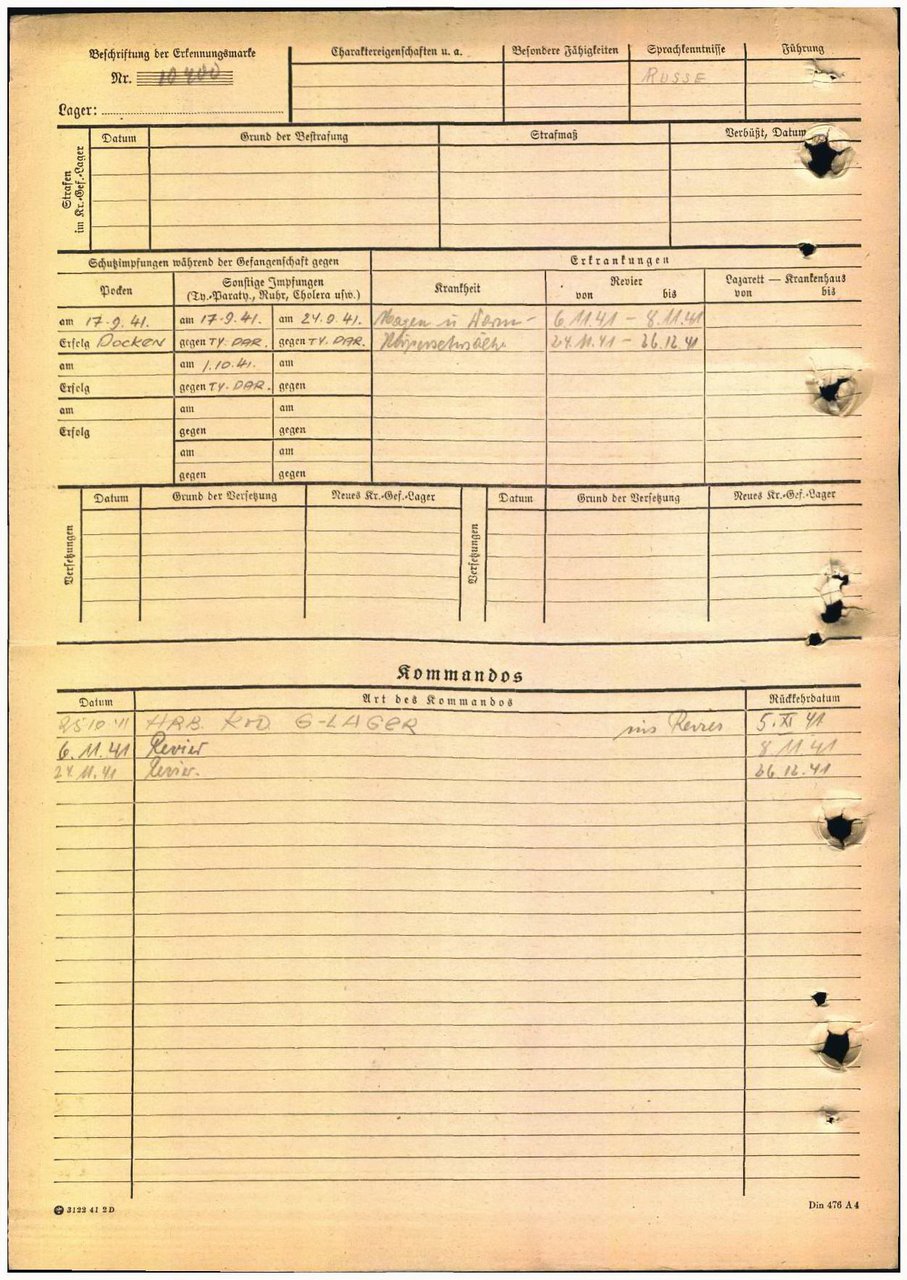 Beschriftung der Erkennungsmarke
Nr. 10400
Lager:
Charaktereigenschaften u. a.
Besondere Fähigkeiten
Sprachkenntnisse
Führung
RUSSE
Strafen im Kr.-Gef.-Lager
Datum
Grund der Bestrafung
Strafmaß
Verbüßt, Datum
Schutzimpfungen während der Gefangenschaft gegen
Erkrankungen
Pocken
Sonstige Impfungen
(Ty.-Paraty., Ruhr, Cholera usw.)
Krankheit
Revier
von bis
Lazarett — Krankenhaus
von bis
am 17-9.41. am 17-9.41. am 24.9.41. Magen u Darm- 6.11.41 – 8.11.41
Erfolg POCKEN gegen TY. PAR. gegen TY. PAR. Körperschwäche 24.11.41 – 26.12.41
am am 1.10.41. am
Erfolg gegen TY. PAR. gegen
am am am
Erfolg gegen gegen
am am
gegen gegen
Versetzungen
Datum
Grund der Versetzung
Neues Kr.-Gef.-Lager
Versetzungen
Datum
Grund der Versetzung
Neues Kr.-Gef.-Lager
Kommandos
Datum
Art des Kommandos
Rückkehrdatum
25 10 41 ARB. KDO. G-LAGER ins Revier 5. XI 41
6. 11. 41 Revier 8 11 41
24 11. 41 Revier. 26.12.41
3122 41 2 D
Din 476 A 4